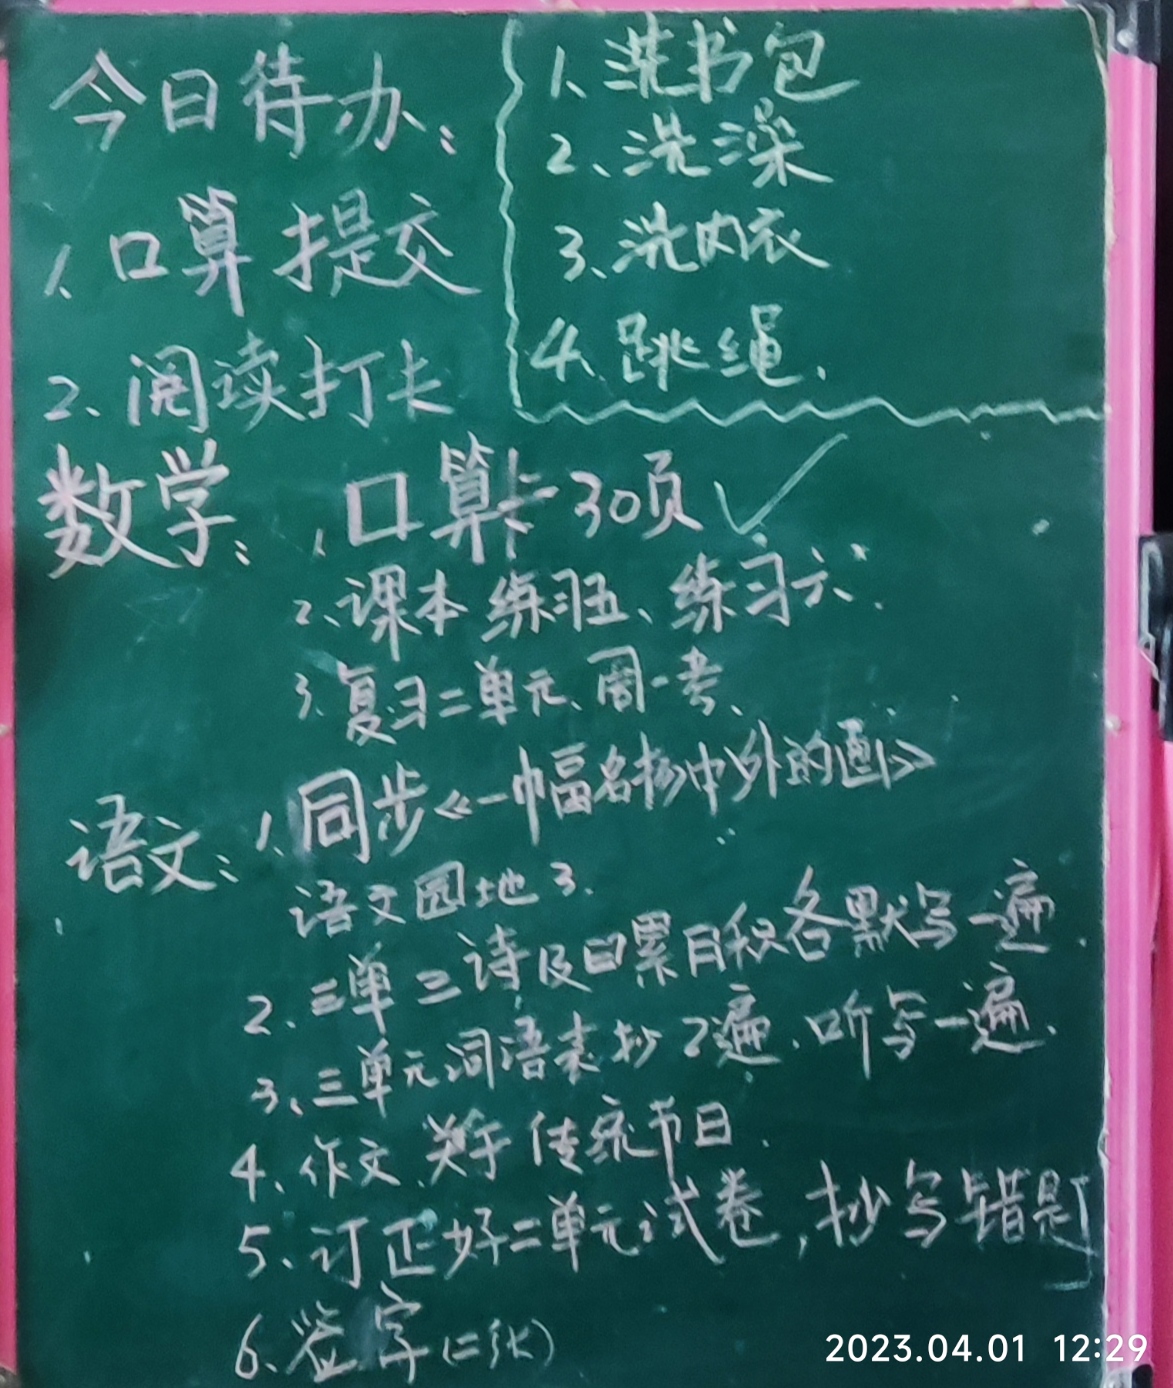 今日待办：
1、口算提交
2、阅读打卡
1、洗书包
2、洗澡
3、洗内衣
4、跳绳.
数学：1、口算卡30页 ✓
2、课本练习五、练习六.
3、复习二单元、周一考、
语文：1、同步《一幅名扬中外的画》
语文园地3.
2、三单三诗及日累月积各默写一遍.
3、三单元词语表抄2遍、听写一遍.
4、作文、关于传统节日.
5、订正好二单元试卷，抄写错题
6、签字（二张）
2023.04.01 12:29